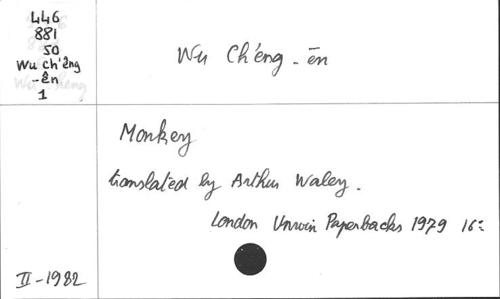 446
881
50
Wu ch'êng
-ên
1
Wu Ch'éng-ēn
Monkey
translated by Arthur Waley.
London Unwin Paperbacks 1979 16:
II-1982